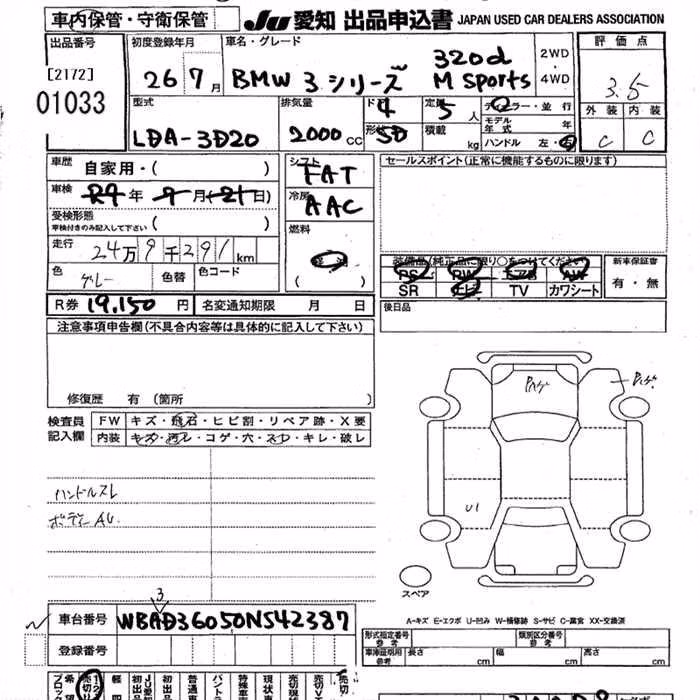 車内保管・守衛保管
JU 愛知 出品申込書 JAPAN USED CAR DEALERS ASSOCIATION
出品番号
[2172]
01033
初度登録年月
26 7月
車名・グレード
BMW 3シリーズ 320d M Sports
2WD・4WD
評価点
3.5
外装 内装
C C
型式
LDA-3D20
排気量
2000 CC
ドア 4
形状 SD
定員 5人
積載 kg
ディーラー・並行
モデル年式 年
ハンドル 左・右
車歴 自家用・( )
車検 R4年 9月(21日)
受検形態
車検付きのみ記入して下さい ( )
走行 24万9千291km
色 グレー 色替 色コード
シフト FAT
冷房 AAC
燃料
( )
セールスポイント(正常に機能するものに限ります)
装備品(純正品に限り○をつけてください)
PS PW エアB AW
SR ナビ TV カワシート
新車保証書
有・無
R券 19,150円 名変通知期限 月 日
後日品
注意事項申告欄(不具合内容等は具体的に記入して下さい)
修復歴 有 (箇所
検査員記入欄
FW キズ・飛石・ヒビ割・リペア跡・X要
内装 キズ・汚レ・コゲ・穴・スレ・キレ・破レ
ハンドルスレ
ボディAU
U1
スペア
A-キズ E-エクボ U-凹み W-補修跡 S-サビ C-腐宮 XX-交換済
3
車台番号 WBAD36050NS42387
登録番号
形式指定番号 参考
類別区分番号 参考
車庫証明用 参考 長さ cm 幅 cm 高さ cm